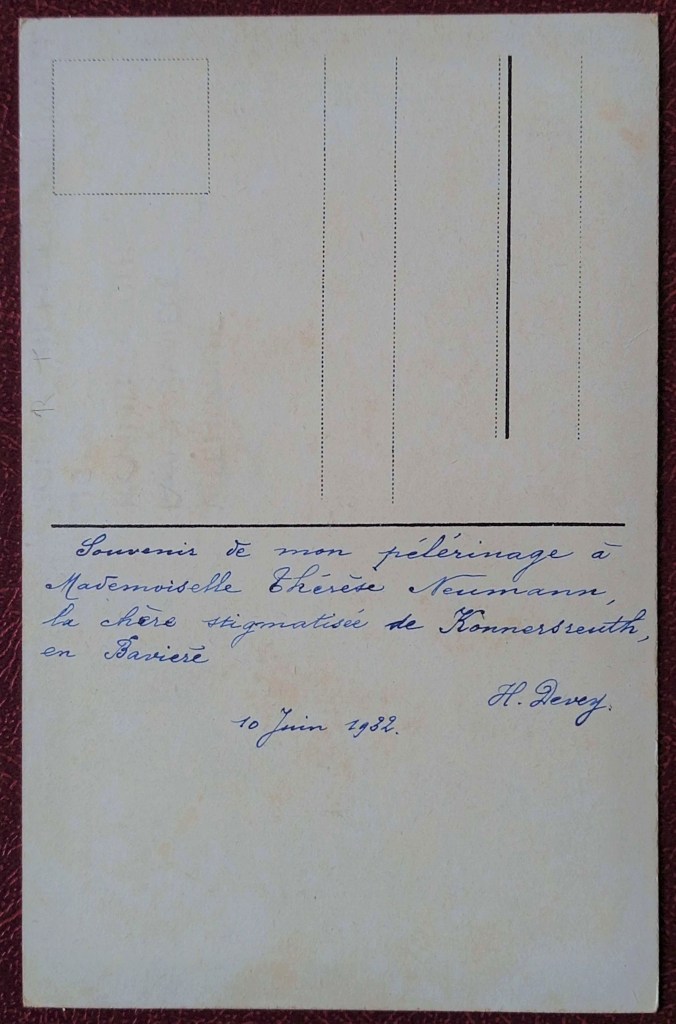 Souvenir de mon pélérinage à
Mademoiselle Thérèse Neumann,
la chère stigmatisée de Konnersreuth,
en Bavière
H. Devey.
10 Juin 1932.